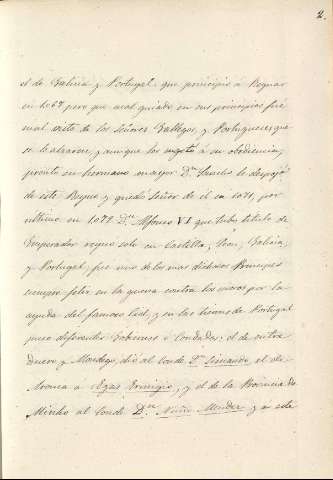 2.
el de Galicia y Portugal, que principió á Reynar
en 1067 pero que mal quiado en sus principios fué
mal visto de los Señores Gallegos, y Portugueses que
se le alzaron, y aunque los sugetó á su obediencia,
pronto su hermano mayor Dn Sancho le despojó
de este Reyno y quedó Señor de él en 1071, por
ultimo en 1072 Dn Alfonso VI que tubo titulo de
Emperador reynó solo en Castilla, Leon, Galicia,
y Portugal, fue uno de los mas dichosos Principes
siempre feliz en la guerra contra los moros por la
ayuda del famoso Cid, y en las tierras de Portugal
puso diferentes Gobiernos ó Condados; el de entre
Duero y Mondego, dió al Conde Dn Sisnando, el de
Arouca á Egas Ermigio, y el de la Provincia de
Minho al Conde Dn Nuño Mendez y a este